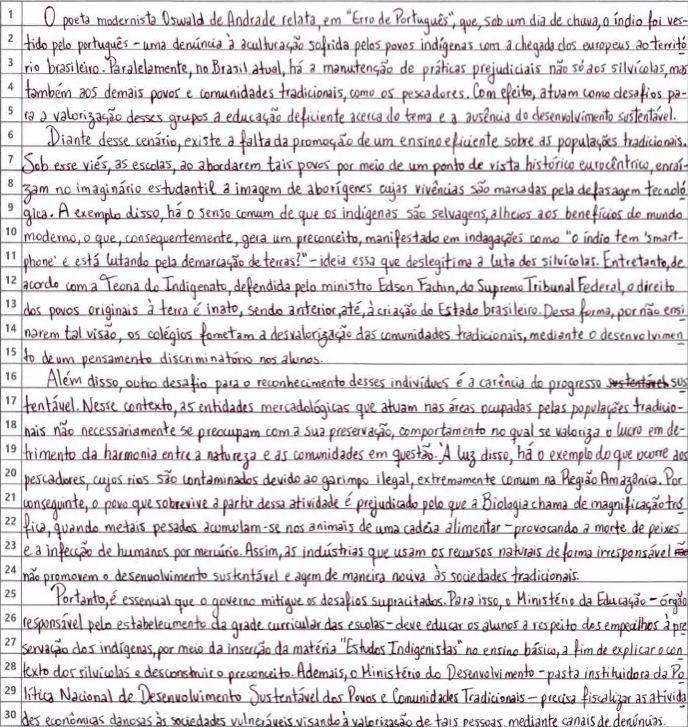 1 O poeta modernista Oswald de Andrade relata, em "Erro de Português", que, sob um dia de chuva, o índio foi ves-
2 tido pelo português - uma denúncia à aculturação sofrida pelos povos indígenas com a chegada dos europeus ao territó
3 rio brasileiro. Paralelamente, no Brasil atual, há a manutenção de práticas prejudiciais não só aos silvícolas, mas
4 também aos demais povos e comunidades tradicionais, como os pescadores. Com efeito, atuam como desafios pa-
5 ra a valorização desses grupos a educação deficiente acerca do tema e a ausência do desenvolvimento sustentável.
6 Diante desse cenário, existe a falta da promoção de um ensino eficiente sobre as populações tradicionais.
7 Sob esse viés, as escolas, ao abordarem tais povos por meio de um ponto de vista histórico eurocêntrico, enraí-
8 zam no imaginário estudantil a imagem de aborígenes cujas vivências são marcadas pela defasagem tecnoló
9 gica. A exemplo disso, há o senso comum de que os indígenas são selvagens, alheios aos benefícios do mundo
10 moderno, o que, consequentemente, gera um preconceito, manifestado em indagações como "o índio tem 'smart-
11 phone' e está lutando pela demarcação de terras?" - ideia essa que deslegitima a luta dos silvícolas. Entretanto, de
12 acordo com a Teoria do Indigenato, defendida pelo ministro Edson Fachin, do Supremo Tribunal Federal, o direito
13 dos povos originais à terra é inato, sendo anterior, até, à criação do Estado brasileiro. Dessa forma, por não ensi
14 narem tal visão, os colégios fometam a desvalorização das comunidades tradicionais, mediante o desenvolvimen
15 to de um pensamento discriminatório nos alunos.
16 Além disso, outro desafio para o reconhecimento desses indivíduos é a carência do progresso sustentável sus
17 tentável. Nesse contexto, as entidades mercadológicas que atuam nas áreas ocupadas pelas populações tradicio-
18 nais não necessariamente se preocupam com a sua preservação, comportamento no qual se valoriza o lucro em de-
19 trimento da harmonia entre a natureza e as comunidades em questão. À luz disso, há o exemplo do que ocorre aos
20 pescadores, cujos rios são contaminados devido ao garimpo ilegal, extremamente comum na Região Amazônia. Por
21 conseguinte, o povo que sobrevive a partir dessa atividade é prejudicado pelo que a Biologia chama de magnificação tró
22 fica, quando metais pesados acumulam-se nos animais de uma cadeia alimentar - provocando a morte de peixes
23 e a infecção de humanos por mercúrio. Assim, as indústrias que usam os recursos naturais de forma irresponsável não
24 não promovem o desenvolvimento sustentável e agem de maneira nociva às sociedades tradicionais.
25 Portanto, é essencial que o governo mitigue os desafios supracitados. Para isso, o Ministério da Educação - órgão
26 responsável pelo estabelecimento da grade curricular das escolas - deve educar os alunos a respeito dos empecilhos à pre
27 servação dos indígenas, por meio da inserção da matéria "Estudos Indigenistas" no ensino básico, a fim de explicar o con
28 texto dos silvícolas e desconstruir o preconceito. Ademais, o Ministério do Desenvolvimento - pasta instituidora da Po
29 lítica Nacional de Desenvolvimento Sustentável dos Povos e Comunidades Tradicionais - precisa fiscalizar as ativida
30 des econômicas danosas às sociedades vulneráveis, visando à valorização de tais pessoas, mediante canais de denúncias.